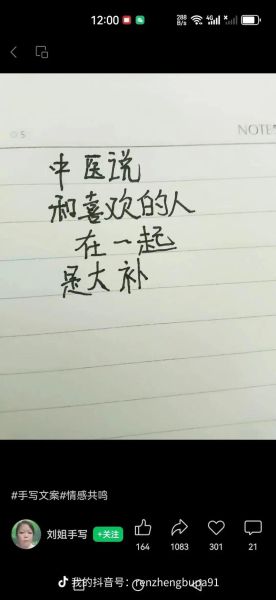 12:00
288
B/s
4G
5
NOTE
中医说
和喜欢的人
在一起
是大补
#手写文案#情感共鸣
刘姐手写
+关注
164
1083
301
21
我的抖音号：renzhengbuga91